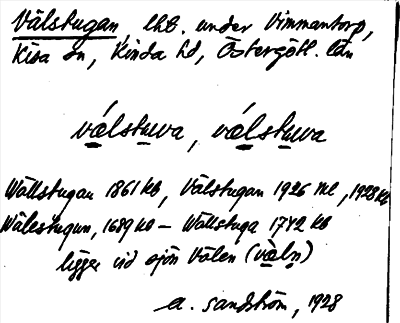 Välstugan, lht. under Vimmantorp,
Kisa sn, Kinda hd, Östergötl. län
vǽlstuva, vǽlstuva
Wällstugan 1861 kb, Välstugan 1926 ml, 1928 kb
Wälestugun, 1689 kb – Wällstuga 1742 kb
ligger vid sjön Välen (væln)
A. Sandström, 1928